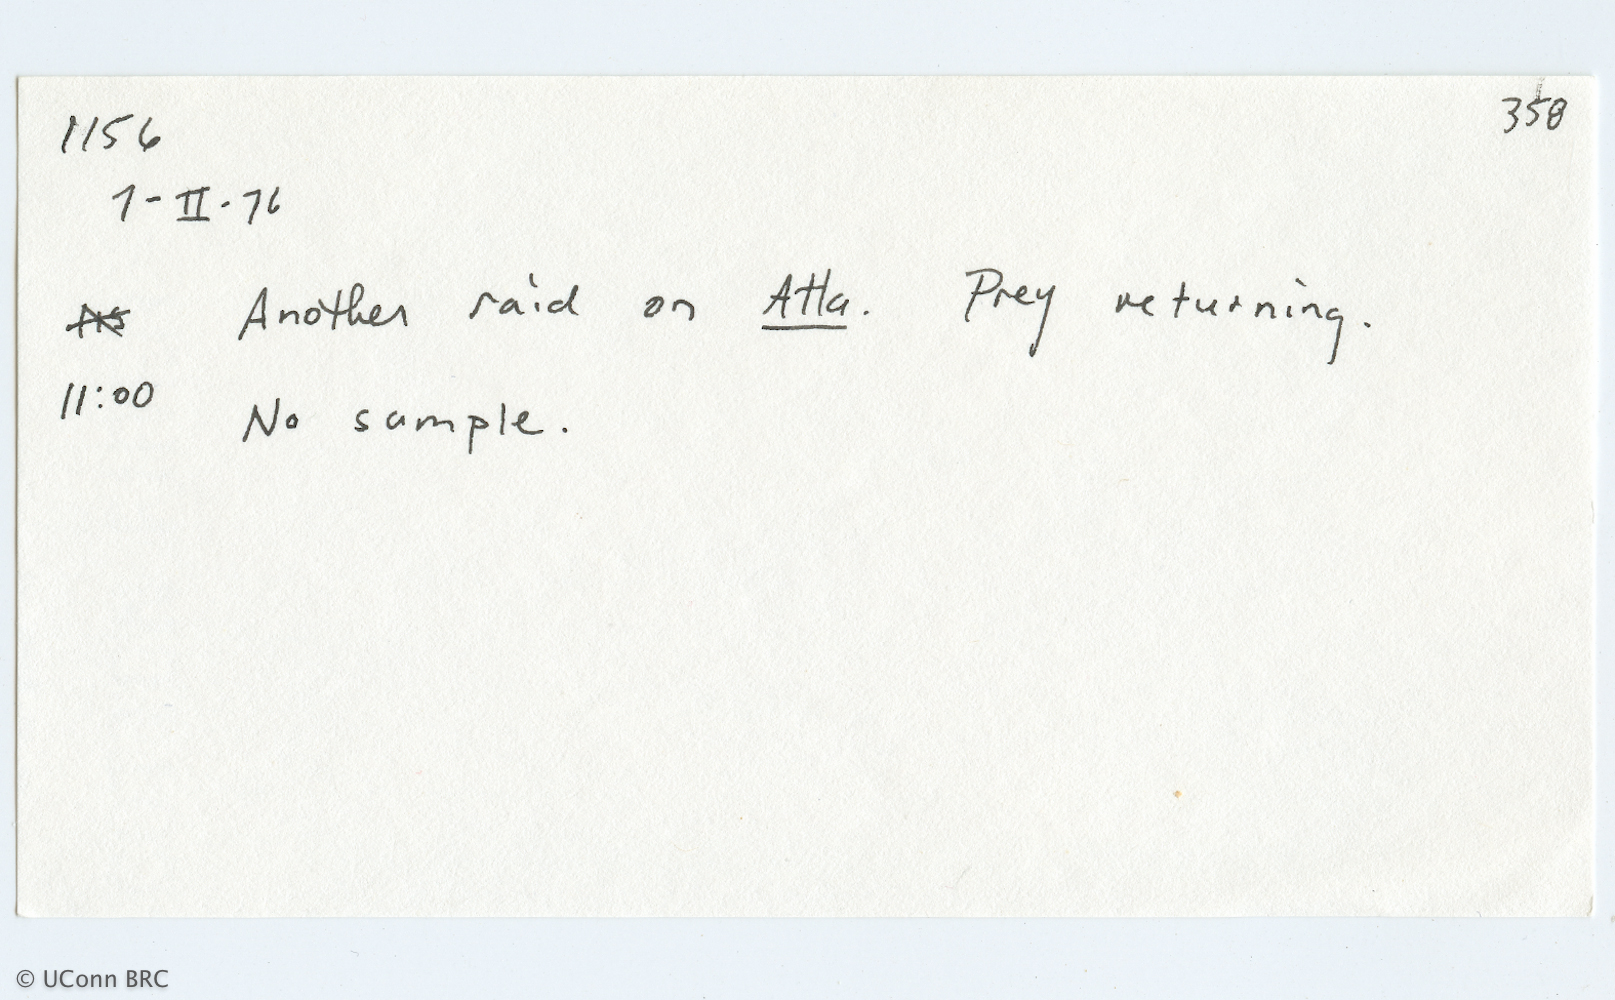 1156
358
7-II-76
Another raid on Atta. Prey returning.
11:00
No sample.
© UConn BRC